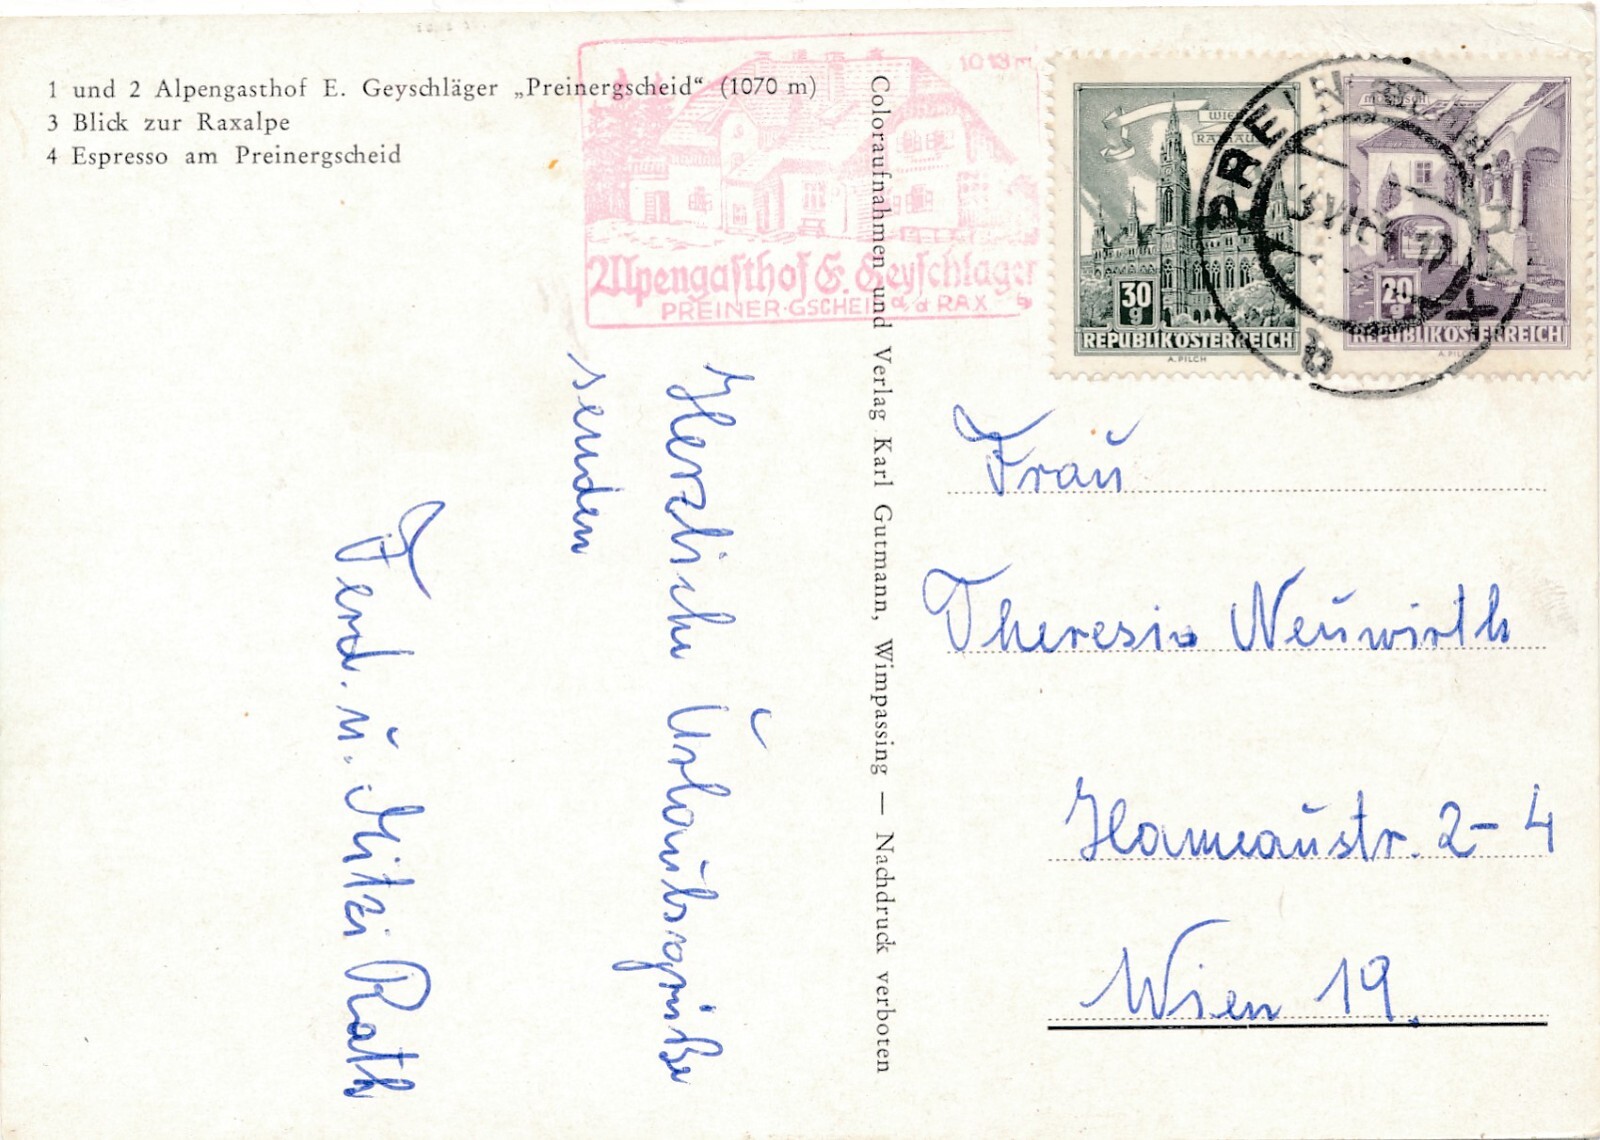 1 und 2 Alpengasthof E. Geyschläger „Preinergscheid“ (1070 m)
3 Blick zur Raxalpe
4 Espresso am Preinergscheid
1013 m
Alpengasthof E. Geyschlager
PREINER-GSCHEID a/d RAX
Coloraufnahmen und Verlag Karl Gutmann, Wimpassing — Nachdruck verboten
WIEN
RATHAUS
30
g
REPUBLIK ÖSTERREICH
A. PILCH
MÖRBISCH
20
g
REPUBLIK ÖSTERREICH
PREIN
RAX
b
Herzliche Urlaubsgrüße
senden
Ferd. u. Mitzi Rath
Frau
Theresia Neuwirth
Hameaustr. 2-4
Wien 19.